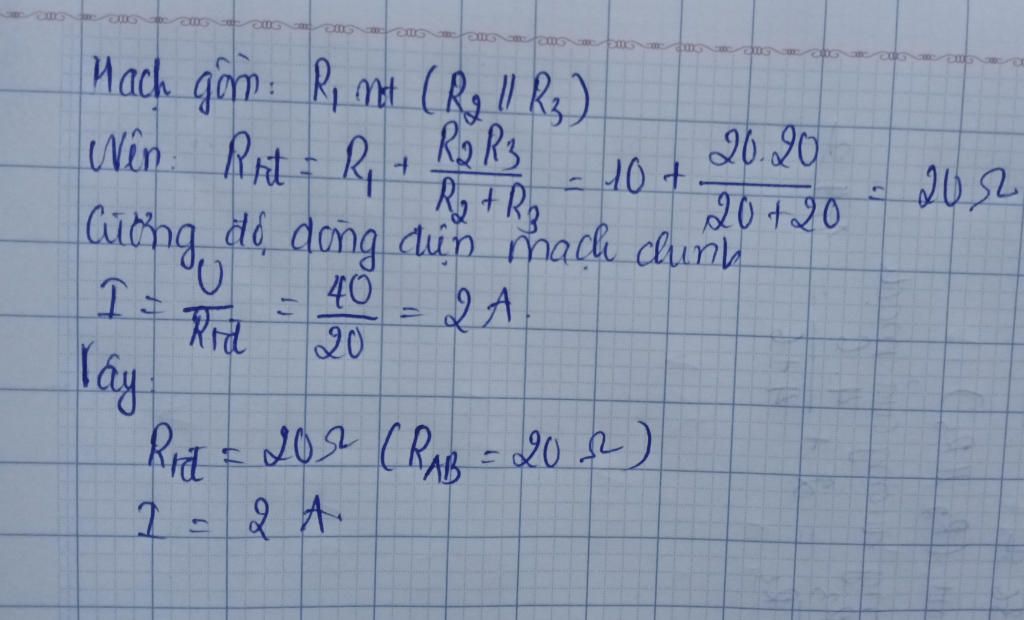 Mạch gồm: R₁ nt (R₂ // R₃)
Nên: Rtđ = R₁ + R₂R₃ / (R₂ + R₃) = 10 + 20.20 / (20 + 20) = 20 Ω
Cường độ dòng điện mạch chính
I = U / Rtđ = 40 / 20 = 2 A.
Vậy:
Rtđ = 20 Ω (R_AB = 20 Ω)
I = 2 A.